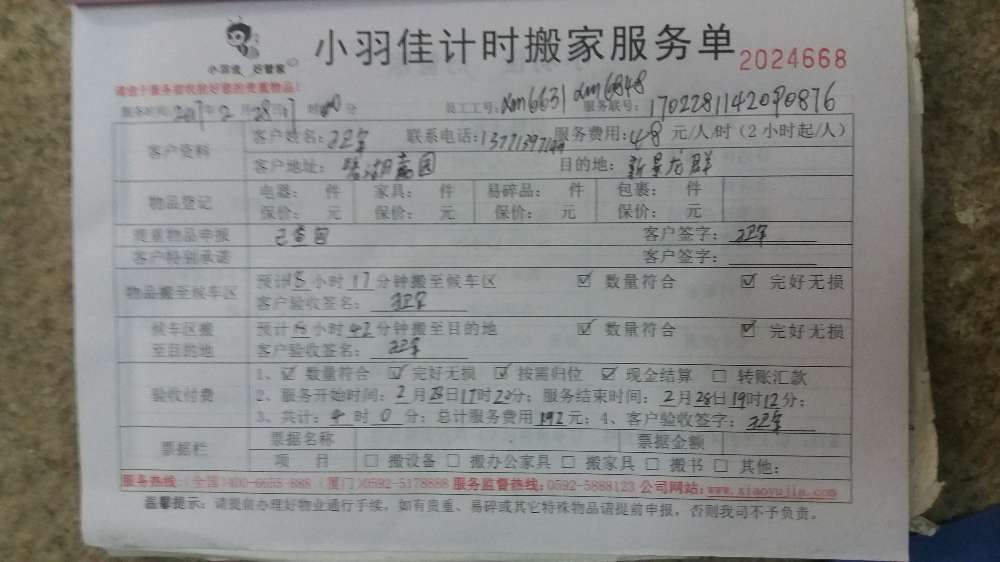 小羽佳计时搬家服务单
小羽佳 好管家
2024668
请查于服务前收捡好您的贵重物品!
服务时间: 2017年2月28日17时00分 员工工号: xm6631 xm6848 服务联号: 1702281142090876
客户资料
客户姓名: 卫军 联系电话: 服务费用: 48元/人/时(2小时起/人)
客户地址: 目的地:
物品登记
电器: 件 家具: 件 易碎品: 件 包裹: 件
保价: 元 保价: 元 保价: 元 保价: 元
贵重物品申报 客户签字: 卫军
客户特别承诺 客户签字:
物品搬至候车区
预计 小时17分钟搬至候车区 ☑ 数量符合 ☑ 完好无损
客户验收签名: 卫军
候车区搬至目的地
预计 小时42分钟搬至目的地 ☑ 数量符合 ☑ 完好无损
客户验收签名: 卫军
验收付费
1、☑ 数量符合 ☑ 完好无损 ☑ 按需归位 ☑ 现金结算 □ 转账汇款
2、服务开始时间: 2月28日17时20分; 服务结束时间: 2月28日19时12分;
3、共计: 4时0分; 总计服务费用192元; 4、客户验收签字: 卫军
票据栏
票据名称 票据金额
项 目 □ 搬设备 □ 搬办公家具 □ 搬家具 □ 搬书 □ 其他:
服务热线:(全国)400-6655-888 (厦门)0592-5178888 服务监督热线:0592-5888123 公司网站:www.xiaoyujia.com
温馨提示: 请提前办理好物业通行手续,如有贵重、易碎或其它特殊物品请提前申报,否则我司不予负责。